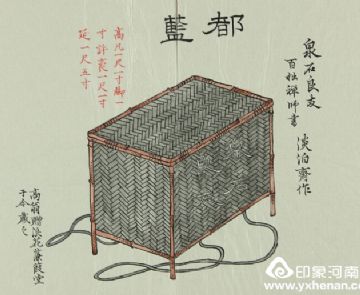 都籃
高凡一尺一寸脚一
寸許袤一尺一寸
延一尺五寸
泉石良友
百拙禅師書
淡泊齋作
高翁贈浪花蒹葭堂
于今藏之
印象河南
www.yxhenan.com